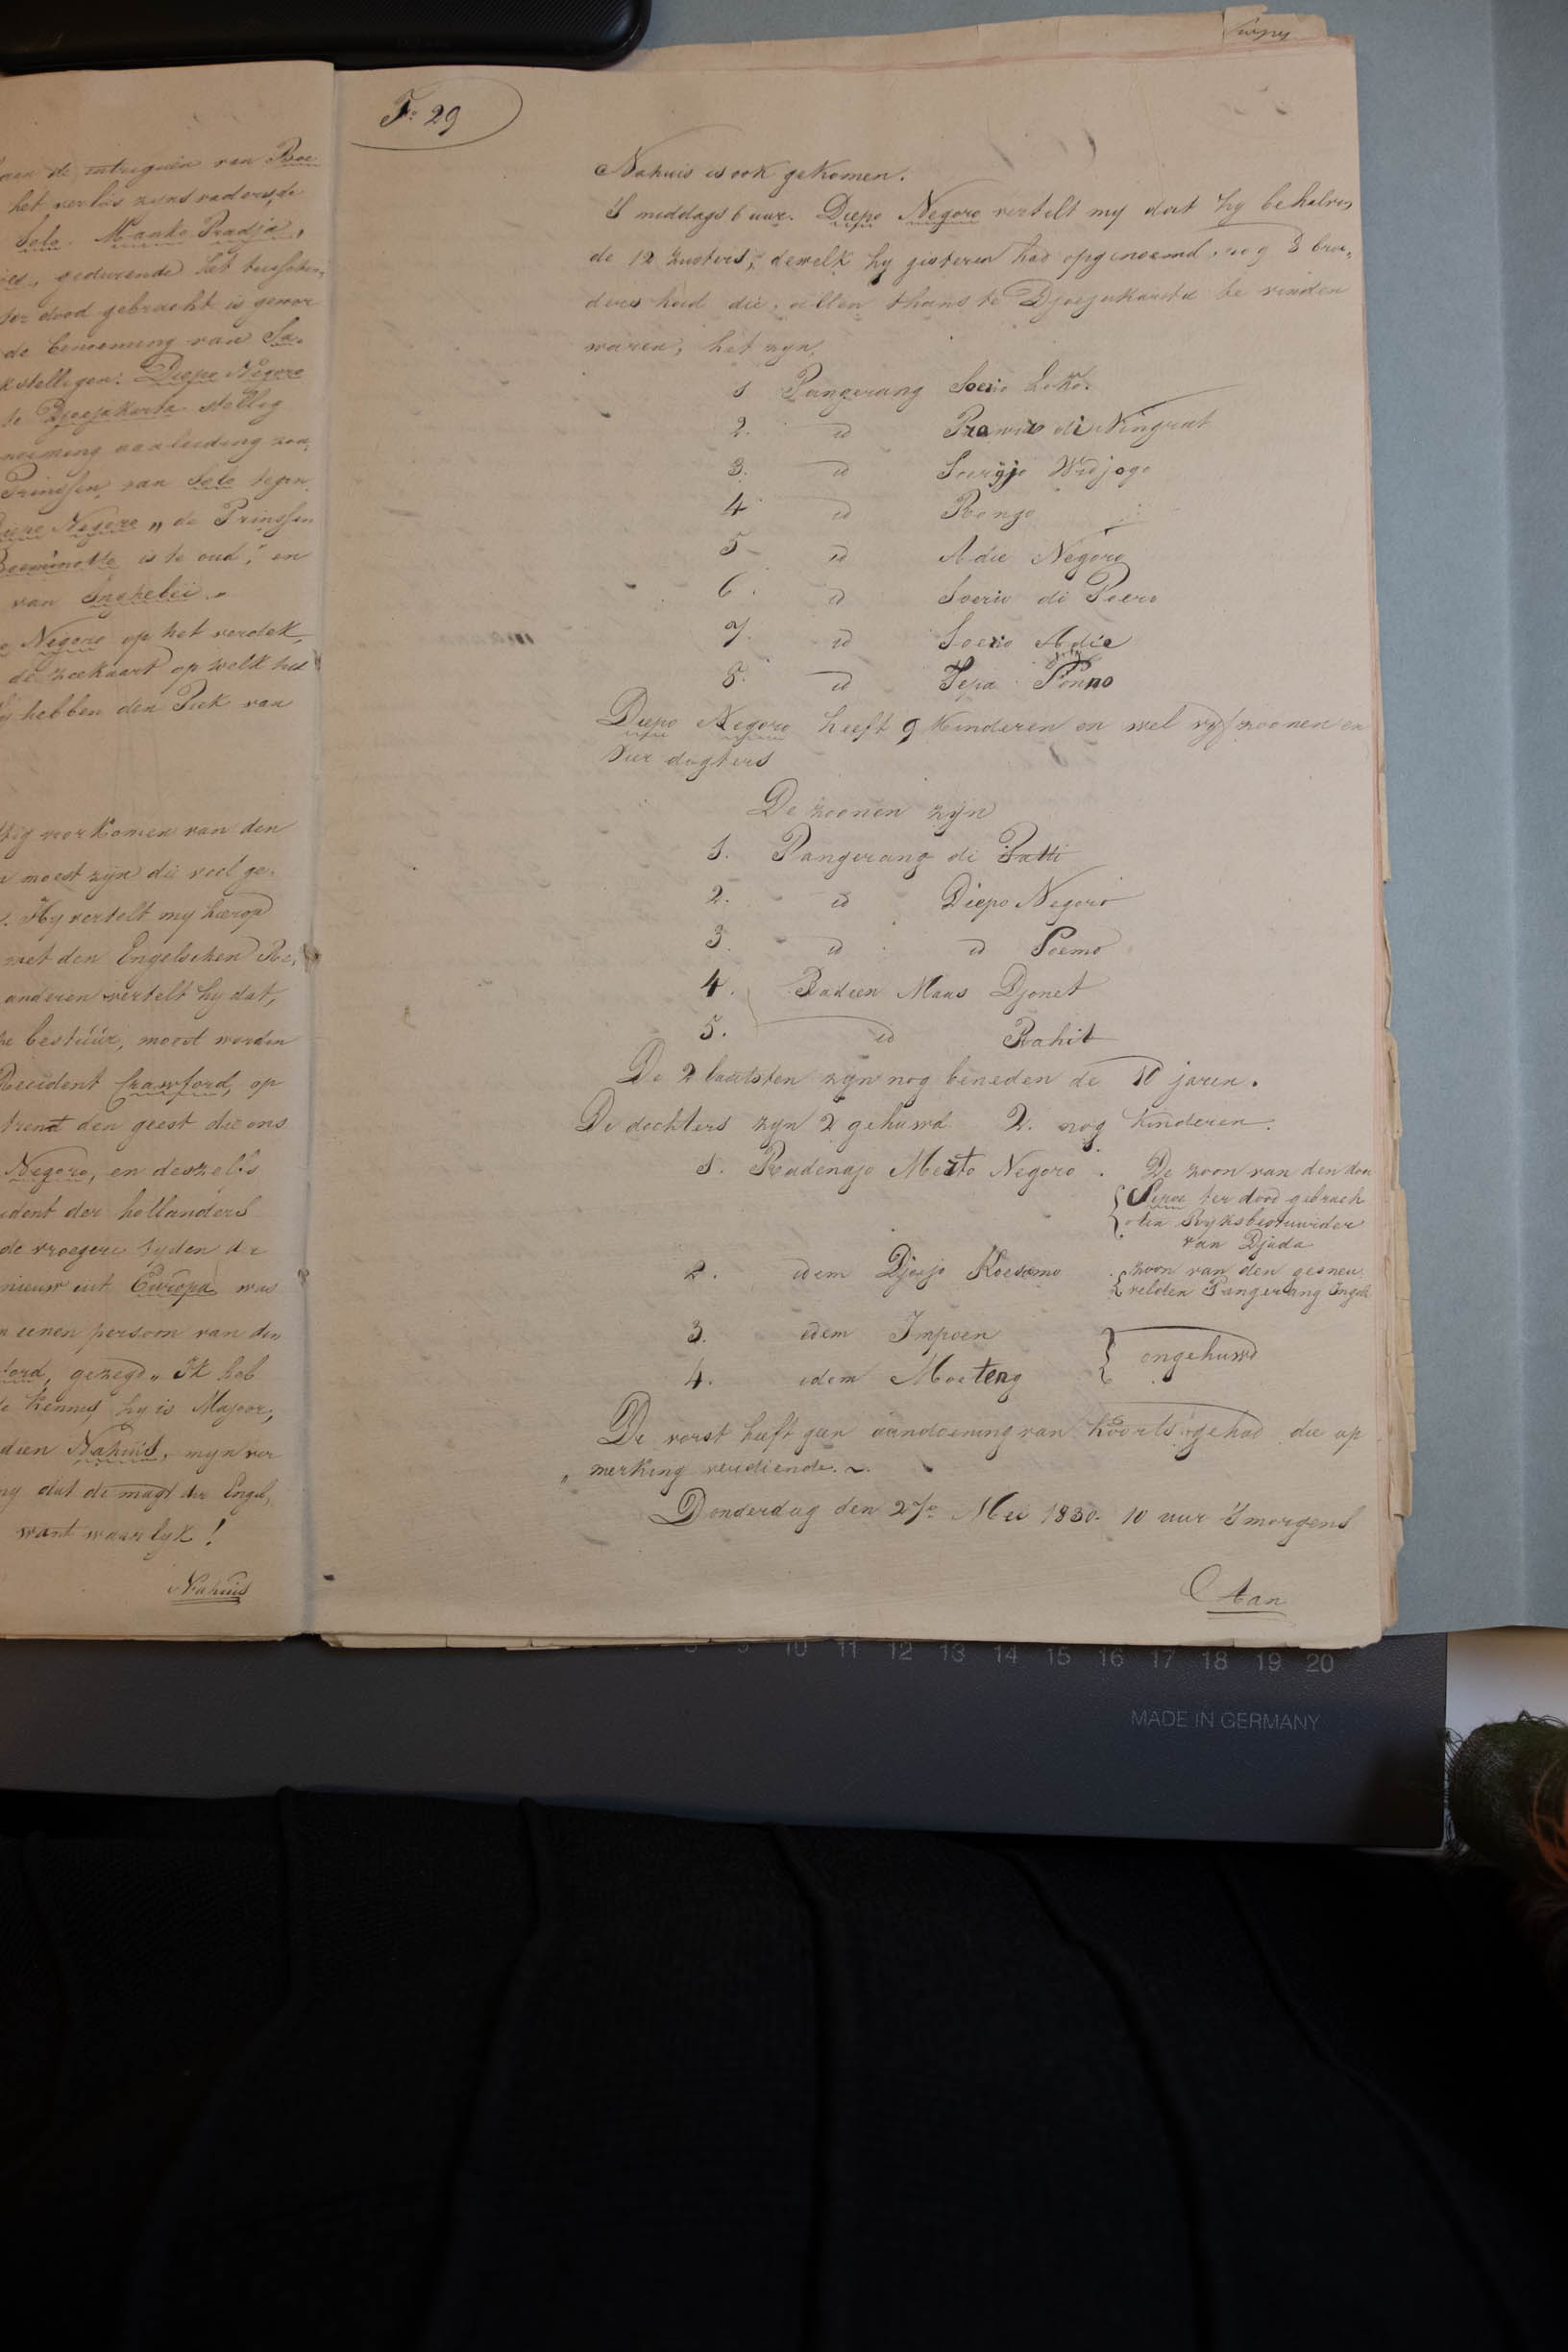 aan de intriguen van Boe-
het verlies zyns vaders, de
Solo. Manko Pradja,
gedurende het tusschen
ter dood gebracht is gewor
de benoeming van
Diepo Negoro
te Djocjakarta stellig
aanleiding
Prinssen van Solo tegen
Negoro „ de Prinssen
is te oud," en
van
Negoro op het verdek
de zeekaart op welk
hebben den Piek van
voorkomen van den
moest zijn die veel ge-
Hy vertelt my hierop
met den Engelschen Re-
anderen vertelt hy dat,
bestuur, moest worden
Resident Crawford, op
trent den geest die ons
Negoro, en deszelfs
ident der hollanders
de vroegere tyden de
nieuw uit Europa was
eenen persoon van den
ford, gezegd „ Ik heb
te kennes, hy is Majoor,
dien Nahuis, myn ver
ng dat de magt der Engel,
want waarlyk!
Nahuis
Fo 29
Nahuis is ook gekomen.
S'middags 6 uur. Diepo Negoro vertelt my dat hy behalven
de 12 zusters, dewelk hy gisteren had opgenoemd, nog 8 broe,
ders had die allen thans te Djocjakarta te vinden
waren, het zyn.
1 Pangerang Soerio Loko.
2. id Prawiro di Ningrat
3. id Soerijo Widjogo
4 id Rongo
5 id Adie Negoro
6. id Soerio di Poero
7. id Soerio Adie
8. id Sepa Ponno
Diepo Negoro heeft 9 kinderen en wel vyf zoonen en
vier dogters
De zoonen zijn
1. Pangerang di Patti
2. id Diepo Negoro
3. id id Soemo
4. Radeen Maas Djonet
5. id Rahit
De 2 laatsten zyn nog beneden de 10 jaren.
De dochters zyn 2 gehuwd 2. nog kinderen.
1. Radenajo Merto Negoro. De zoon van den door
Sepoe ter dood gebrach
ten Ryksbestuurder
van Djuda
2. idem Djoijo Koesomo zoon van den gesneu
velden Pangerang Ingebi
3. idem Impoen
4. idem Moeteng ongehuwd
De vorst heeft geen aandoening van koorts gehad die op
„ merking verdiende.
Donderdag den 27e Mei 1830. 10 uur 's morgens
Aan
10 11 12 13 14 15 16 17 18 19 20
MADE IN GERMANY